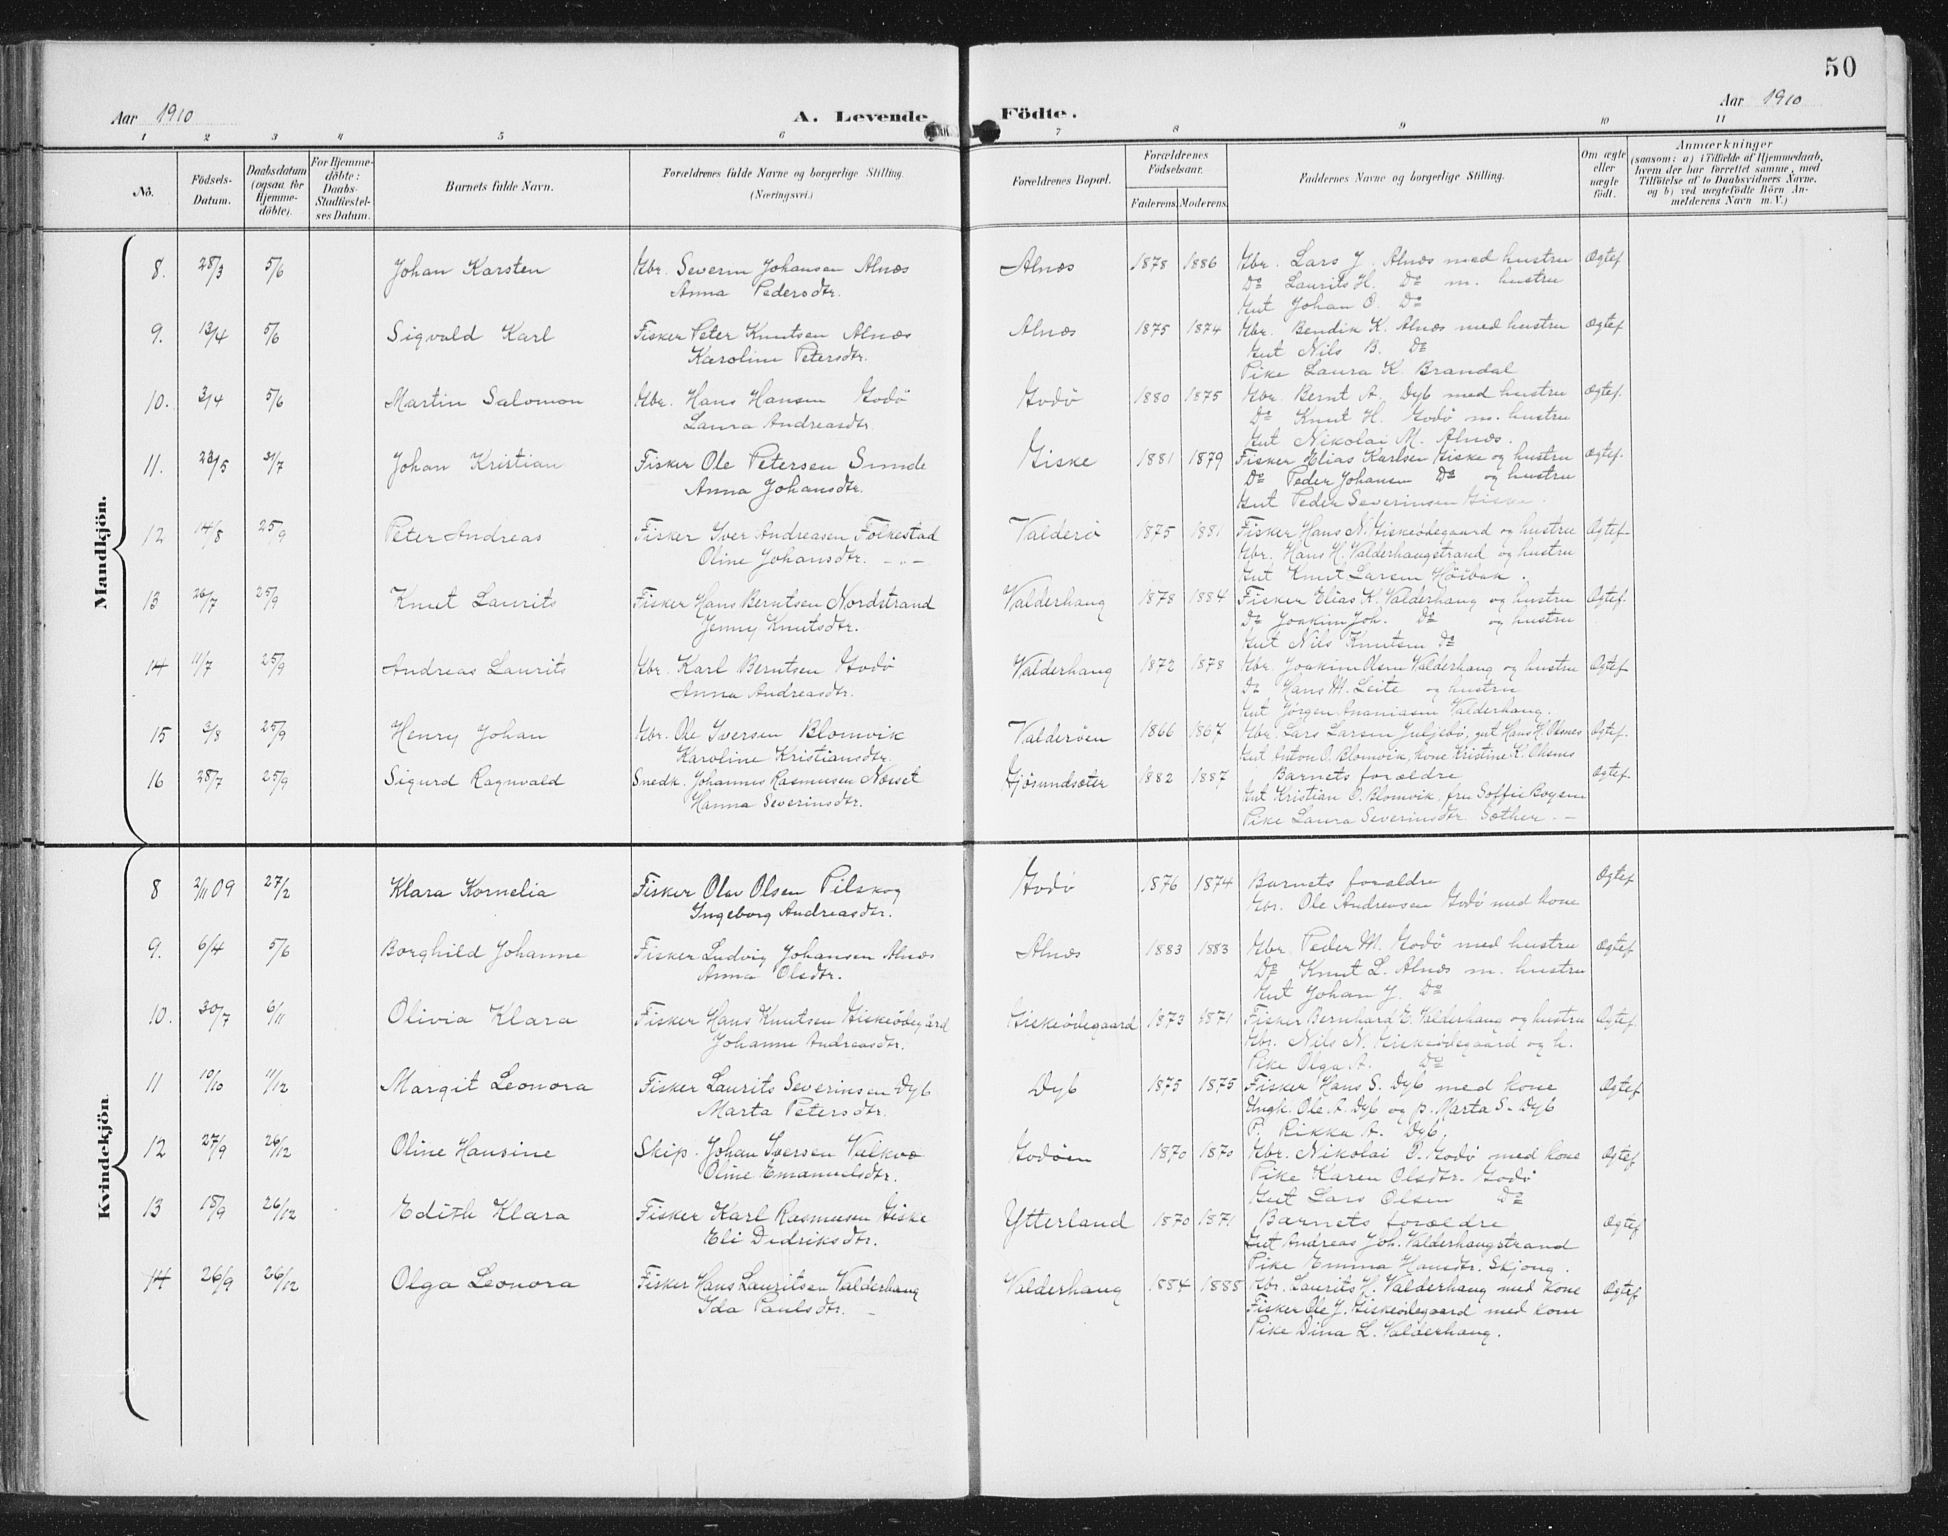 50
Aar 1910
A. Levende
Födte.
Aar 1910
1 2 3 4 5 6 7 8 9 10 11
No.
Födsels-Datum.
Daabsdatum (ogsaa for Hjemme-döbte).
For Hjemme-döbte: Daabs-Stadfæstel-ses Datum.
Barnets fulde Navn.
Forældrenes fulde Navne og borgerlige Stilling.
(Næringsvei.)
Forældrenes Bopæl.
Forældrenes Födselsaar.
Faderens. Moderens.
Faddernes Navne og borgerlige Stilling.
Om ægte eller uægte födt.
Anmærkninger
(saasom: a) i Tilfælde af Hjemmedaab, hvem der har forrettet samme, med Tilföielse af to Daabsvidners Navne, og b) ved uægtefödte Börn An-melderens Navn m. V.)
Mandkjön.
8. 28/3 5/6 Johan Karsten Gbr. Severin Johansen Alnæs Alnæs 1878 1886 Gbr. Lars J. Alnæs med hustru Ægtef
Anna Pedersdtr. Do Laurits H. Do m. hustru
Gut Johan O. Do
9. 13/4 5/6 Sigvald Karl Fisker Peter Knutsen Alnæs Alnæs 1875 1874 Gbr. Bendik K. Alnæs med hustru Ægtef
Karoline Petersdtr. Gut Nils B. Do
Pike Laura K. Brandal
10. 3/4 5/6 Martin Salomon Gbr. Hans Hansen Godö Godö 1880 1875 Gbr. Bernt A. Dyb med hustru Ægtef.
Laura Andreasdtr. Do Knut H. Godö m. hustru
Gut Nikolai M. Alnæs.
11. /5 31/7 Johan Kristian Fisker Ole Petersen Sunde Giske 1881 1879 Fisker Elias Karlsen Giske og hustru Ægtef.
Anna Johansdtr. Do Peder Johansen Do og hustru
Gut Peder Severinsen Giske.
12 14/8 25/9 Peter Andreas Fisker Iver Andreasen Folkestad Valderö 1875 1881 Fisker Hans N. Giskeödegaard og hustru Ægtef
Oline Johansdtr. -"- Gbr. Hans H. Valderhaugstrand og hustru
Gut Knut Larsen Höibak.
13 26/7 25/9 Knut Laurits Fisker Hans Berntsen Nordstrand Valderhaug 1878 1884 Fisker Elias K. Valderhaug og hustru Ægtef.
Jenny Knutsdtr. Do Joakim Joh. Do og hustru
Gut Nils Knutsen Do
14 11/7 25/9 Andreas Laurits Gbr. Karl Berntsen Godö Valderhaug 1872 1878 Gbr. Joakim Olsen Valderhaug og hustru Ægtef
Anna Andreasdtr. Do Hans M. Leite og hustru
Gut Jørgen Ananiasen Valderhaug.
15 3/8 25/9 Henry Johan Gbr. Ole Iversen Blomvik Valderöen 1866 1867 Gbr. Lars Larsen Juljebö, gut Hans H. Oksnes Ægtef.
Karoline Kristiansdtr. Gut Anton O. Blomvik, kone Kristine K. Oksnes
16 28/7 25/9 Sigurd Ragnvald Snedk. Johannes Rasmusen Næset Gjösundsæter 1882 1887 Barnets forældre Ægtef.
Hanna Severinsdtr. Gut Kristian O. Blomvik, fru Soffie Boysen
Pike Laura Severinsdtr. Sæther. -
Kvindekjön.
8 2/11 09 27/2 Klara Kornelia Fisker Olav Olsen Pilskog Godö 1876 1874 Barnets forældre Ægtef
Ingeborg Andreasdtr. Gbr. Ole Andreasen Godö med kone
9. 6/4 5/6 Borghild Johanne Fisker Ludvig Johansen Alnæs Alnæs 1883 1883 Gbr. Peder M. Godö med hustru Ægtef
Anna Olsdtr. Do Knut L. Alnæs m. hustru
Gut Johan J. Do
10. 30/7 6/11 Olivia Klara Fisker Hans Knutsen Giskeödegård Giskeödegaard 1873 1871 Fisker Bernhard E. Valderhaug og hustru Ægtef.
Johanne Andreasdtr. Gbr. Nils N. Giskeödegaard og h.
Pike Olga A. Do
11 19/10 11/12 Margit Leonora Fisker Laurits Severinsen Dyb Dyb 1875 1875 Fisker Hans S. Dyb med kone Ægtef
Marta Petersdtr. Ungk. Ole A. Dyb og p. Marta S. Dyb
P. Rikka A. Dyb.
12 27/9 26/12 Oline Hansine Skip. Johan Iversen Godöen 1870 1870 Gbr. Nikolai O. Godö med kone Ægtef
Oline Emanuelsdtr. Pike Karen Olsdtr. Godö
Gut Lars Olsen Do
13 18/9 26/12 Edith Klara Fisker Karl Rasmusen Giske Ytterland 1870 1871 Barnets forældre Ægtef
Eli Didriksdtr. Gut Andreas Joh. Valderhaugstrand
Pike Emma Hansdtr. Skjong.
14 26/9 26/12 Olga Leonora Fisker Hans Lauritsen Valderhaug Valderhaug 1884 1888 Gbr. Laurits H. Valderhaug med kone Ægtef
Ida Paulsdtr. - Fisker Ole J. Giskeödegaard med kone
Pike Dina L. Valderhaug.